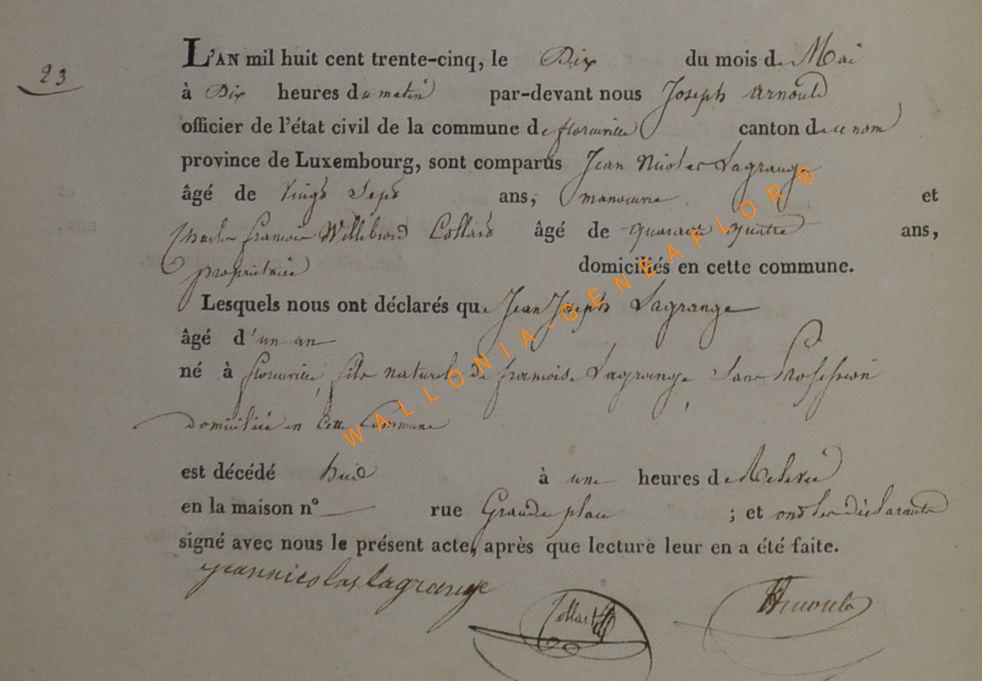 23
L'AN mil huit cent trente-cinq, le Dix du mois de Mai
à Dix heures du matin par-devant nous Joseph Arnould
officier de l'état civil de la commune de florenville canton de ce nom
province de Luxembourg, sont comparus Jean Nicolas Lagrange
âgé de vingt Sept ans, manoeuvre et
Charles francois Willibrord Collard âgé de quarante quatre ans,
propriétaire domiciliés en cette commune.
Lesquels nous ont déclarés que Jean Joseph Lagrange
âgé d'un an
né à florenville, fils naturel de francoise Lagrange, Sans Profession
domiciliée en cette Commune
est décédé hier à une heures de Relevée
en la maison n° rue Grande place ; et ont les déclarants
signé avec nous le présent acte, après que lecture leur en a été faite.
jeannicolas lagrange Collard Arnould
WALLONIA-GENEAFLOR®